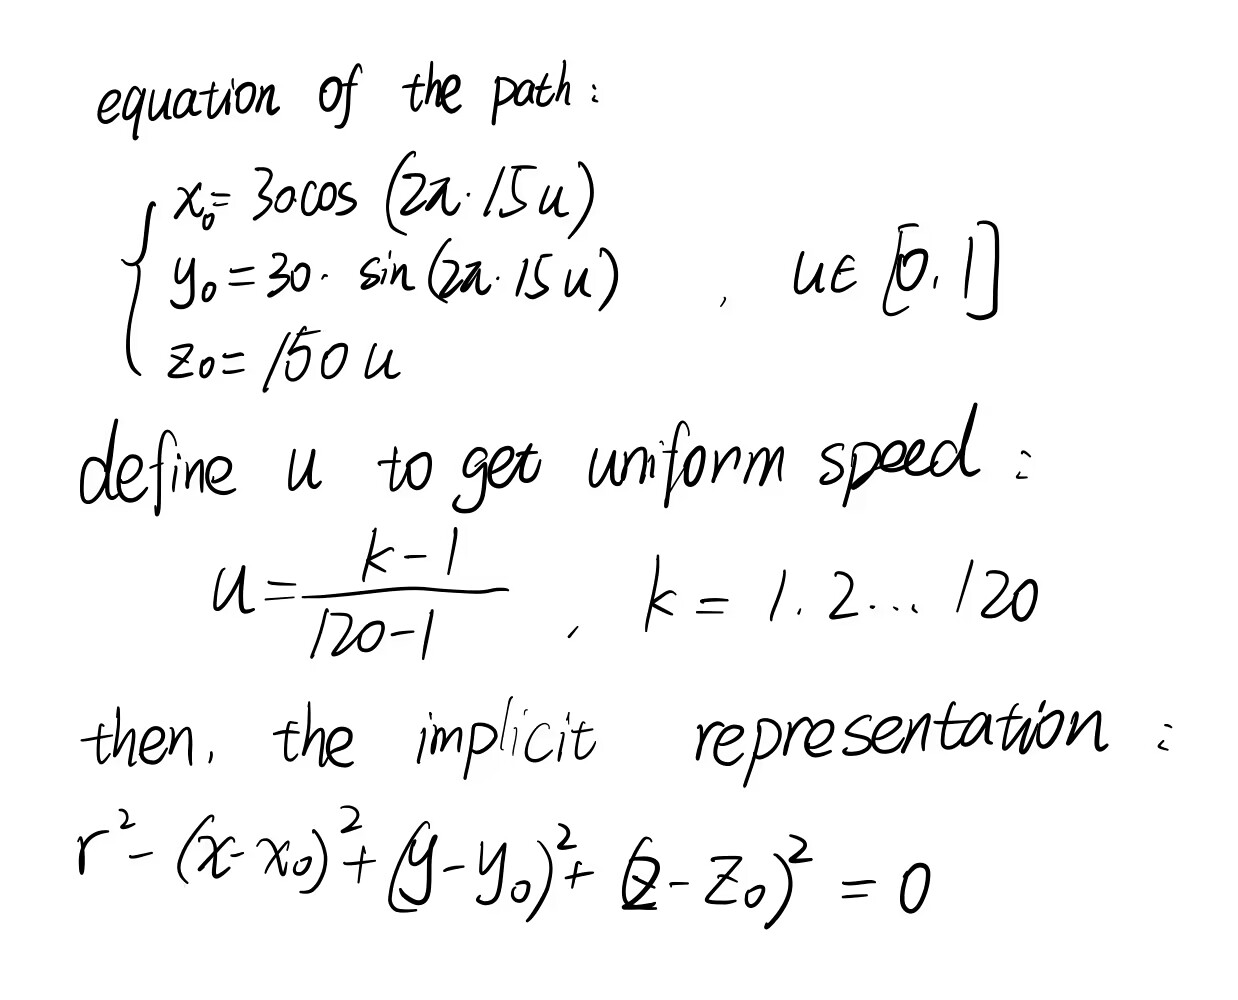 equation of the path:
x₀= 30.cos (2π· 15u)
y₀ = 30· sin (2π· 15u) , u∈ [0, 1]
z₀= 150 u
define u to get uniform speed :
u = (k-1)/(120-1) , k = 1. 2... 120
then, the implicit representation :
r² - (x-x₀)² + (y-y₀)² + (z-z₀)² = 0